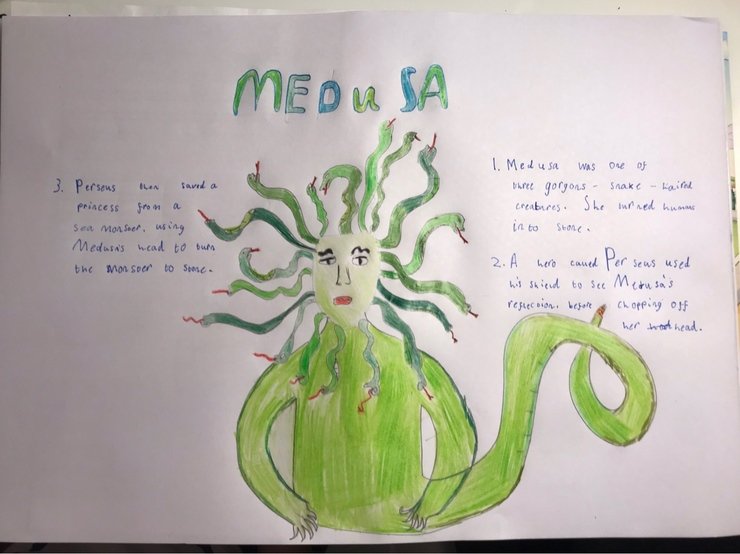 MEDUSA
1. Medusa was one of
three gorgons - snake - haired
creatures. She turned humans
into stone.
2. A hero called Perseus used
his shield to see Medusa's
reflection, before chopping off
her head.
3. Perseus then saved a
princess from a
sea monster, using
Medusa's head to turn
the monster to stone.